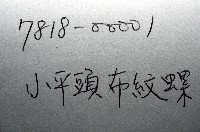 7818-00001
小平頭布紋螺